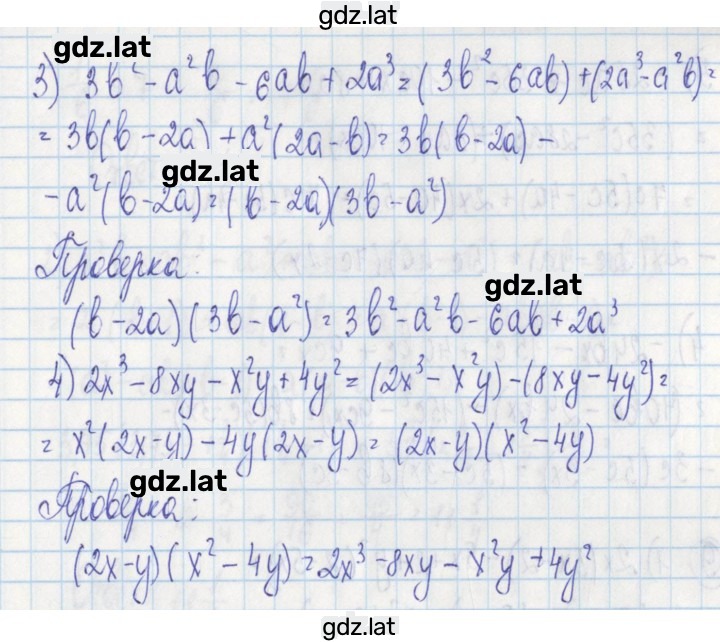 gdz.lat
gdz.lat
3) 3b² - a²b - 6ab + 2a³ = (3b² - 6ab) + (2a³ - a²b) =
= 3b(b - 2a) + a²(2a - b) = 3b(b - 2a) -
gdz.lat
- a²(b - 2a) = (b - 2a)(3b - a²)
Проверка:
gdz.lat
(b - 2a)(3b - a²) = 3b² - a²b - 6ab + 2a³
4) 2x³ - 8xy - x²y + 4y² = (2x³ - x²y) - (8xy - 4y²) =
= x²(2x - y) - 4y(2x - y) = (2x - y)(x² - 4y)
gdz.lat
Проверка:
(2x - y)(x² - 4y) = 2x³ - 8xy - x²y + 4y²
gdz.lat